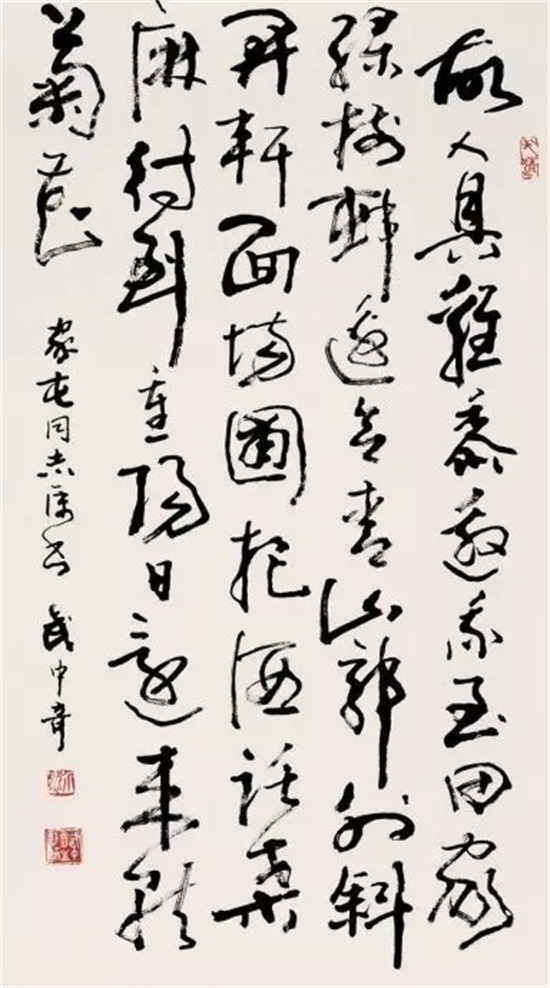 故人具雞黍邀我至田家
綠樹邨邊合青山郭外斜
開軒面場圃把酒話桑
麻待到重陽日還來就
菊花
家屯同志属书 武中奇